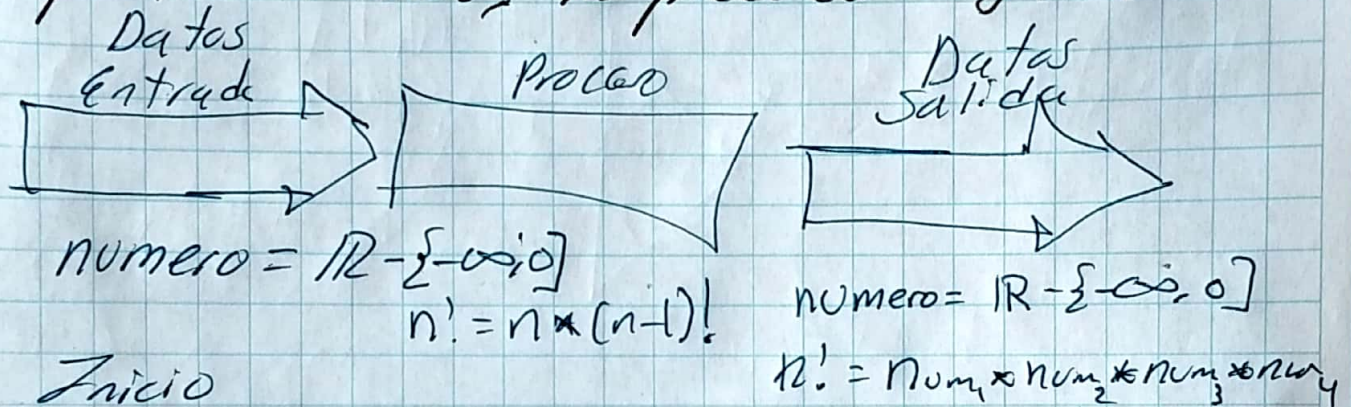 Datos
Entrada
Proceso
Datos
Salida
numero = ℝ-{-∞;0]
n! = n * (n-1)!
numero = ℝ-{-∞, 0]
n! = num₁ * num₂ * num₃ * num₄
Inicio